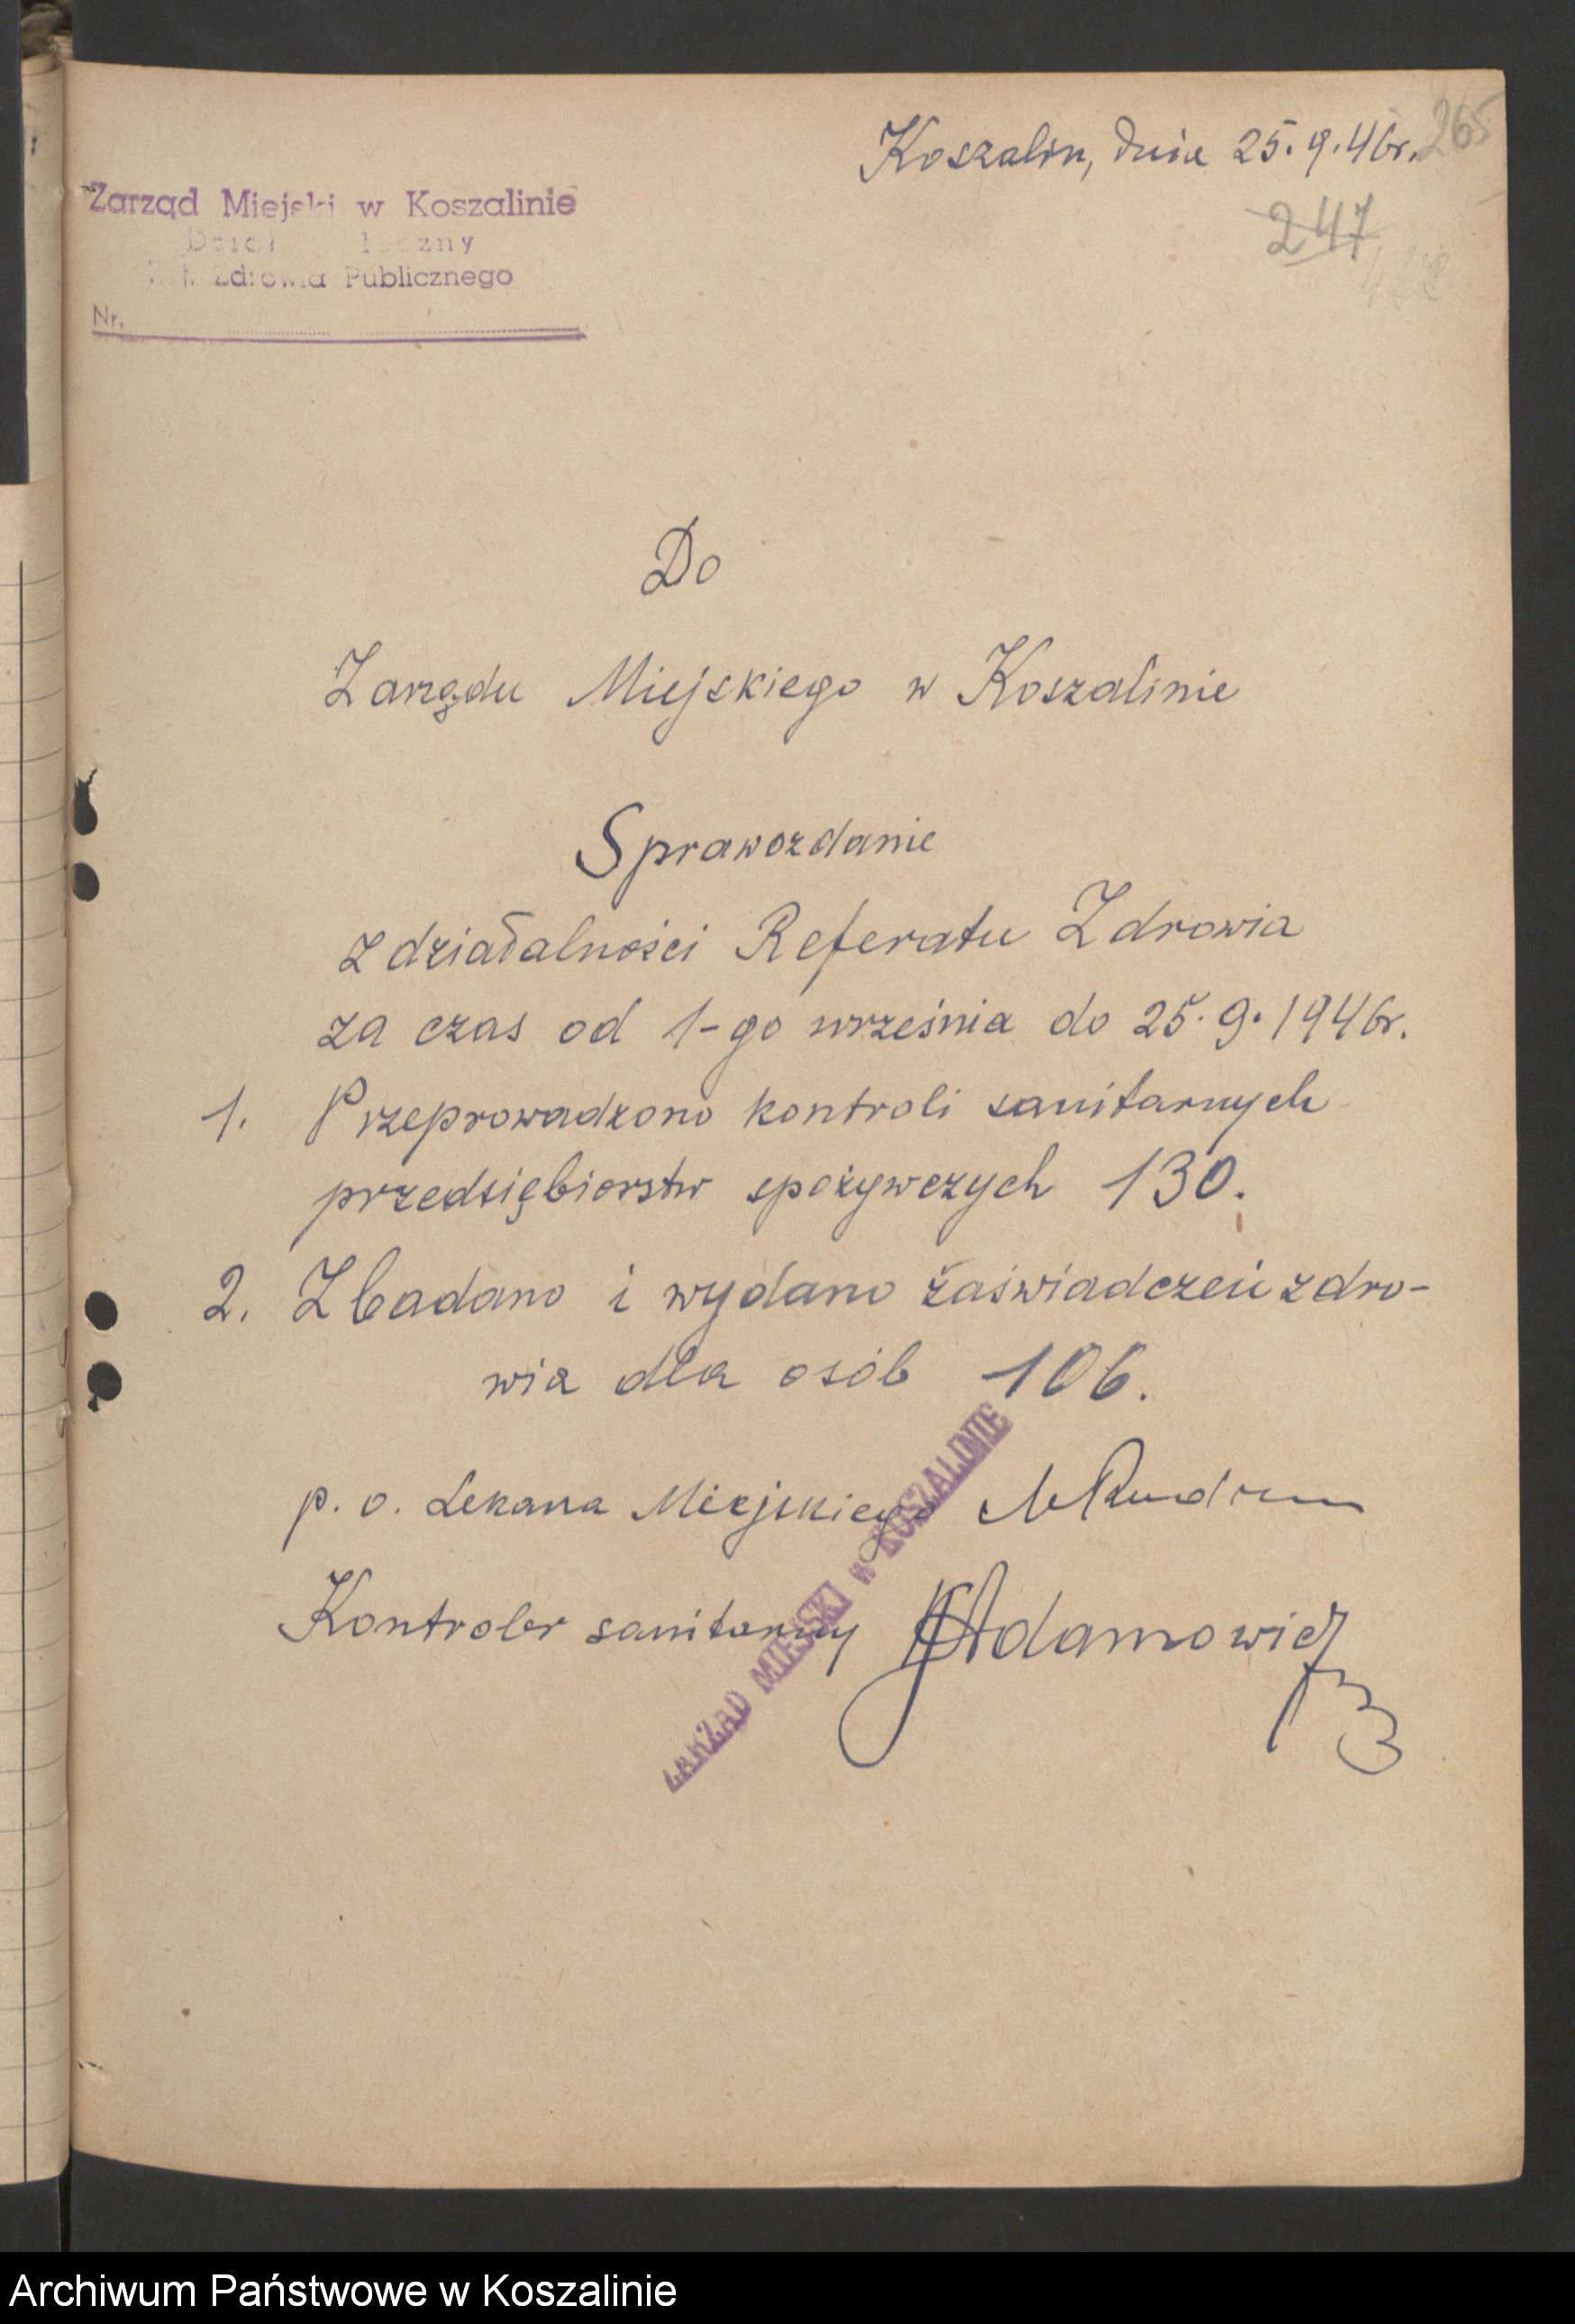 Koszalin, dnia 25.9.46r.
265
247
Zarząd Miejski w Koszalinie
Zdrowia Publicznego
Nr.
Do
Zarządu Miejskiego w Koszalinie
Sprawozdanie
z działalności Referatu Zdrowia
za czas od 1-go września do 25.9.1946r.
1. Przeprowadzono kontroli sanitarnych
przedsiębiorstw spożywczych 130.
2. Zbadano i wydano zaświadczeń zdro-
wia dla osób 106.
p. o. Lekarza Miejskiego
Kontroler sanitarny Adamowicz
ZARZĄD MIEJSKI w KOSZALINIE
Archiwum Państwowe w Koszalinie